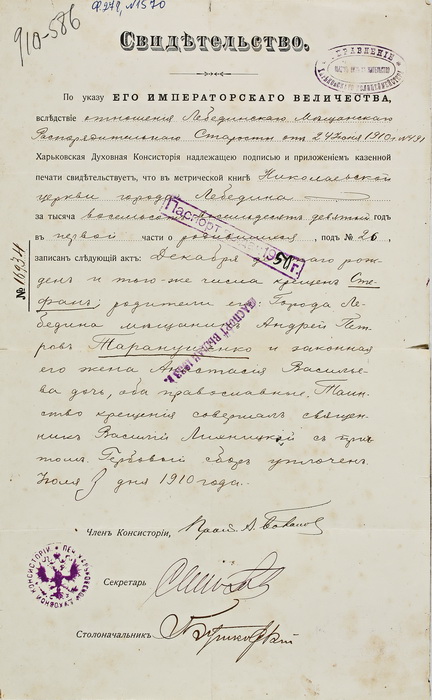 910-586
Ф. 279, №1570
Свидѣтельство.
УПРАВЛЕНІЕ
По указу ЕГО ИМПЕРАТОРСКАГО ВЕЛИЧЕСТВА,
вслѣдствіе отношенія Лебединскаго Мѣщанскаго
Распорядительнаго Старосты отъ 24 Іюня 1910 г. №
Харьковская Духовная Консисторія надлежащею подписью и приложеніемъ казенной
печати свидѣтельствуетъ, что въ метрической книгѣ Николаевской
церкви города Лебедина
за тысяча восемьсотъ восемьдесятъ девятый годъ
въ первой части о родившихся, подъ № 26,
записанъ слѣдующій актъ: Декабря рож-
денъ и того-же числа крещенъ Сте-
фанъ; родители его: Города Ле-
бедина мѣщанинъ Андрей Пет-
ровъ Таранушенко и законная
его жена Анастасія Василье-
ва дочь, оба православные. Таин-
ство крещенія совершалъ священ-
никъ Василій съ прич-
томъ. Гербовый сборъ уплаченъ.
Іюля дня 1910 года.
№ 16934
Паспорт
ПАСПОРТ ВЫДАН 1933 г.
Членъ Консисторіи,
Секретарь
Столоначальникъ